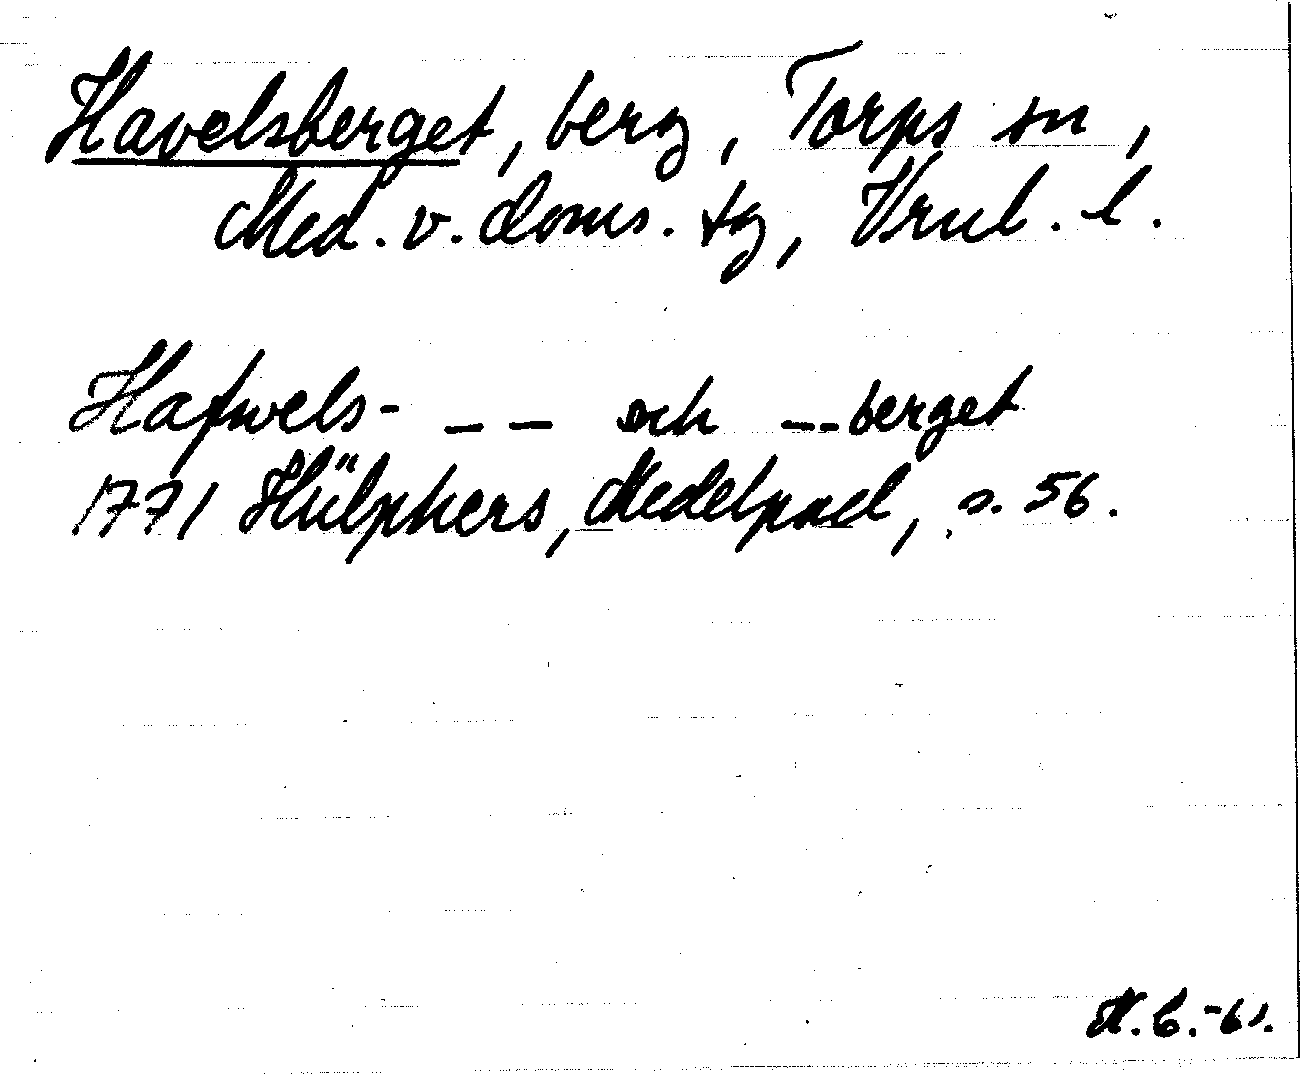 Havelsberget, berg, Torps sn,
Med. v. doms. tg, Vrnl. l.
Hafwels- _ _ och _ _ berget
1771 Hülphers, Medelpad, s. 56.